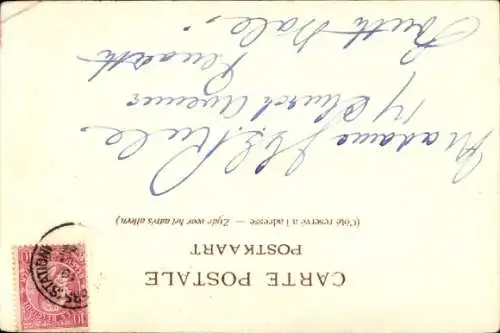 CARTE POSTALE
POSTKAART
(Côté réservé à l'adresse — Zijde voor het adres alleen.)
Madame
17 Church Avenue
Penarth
South Wales.